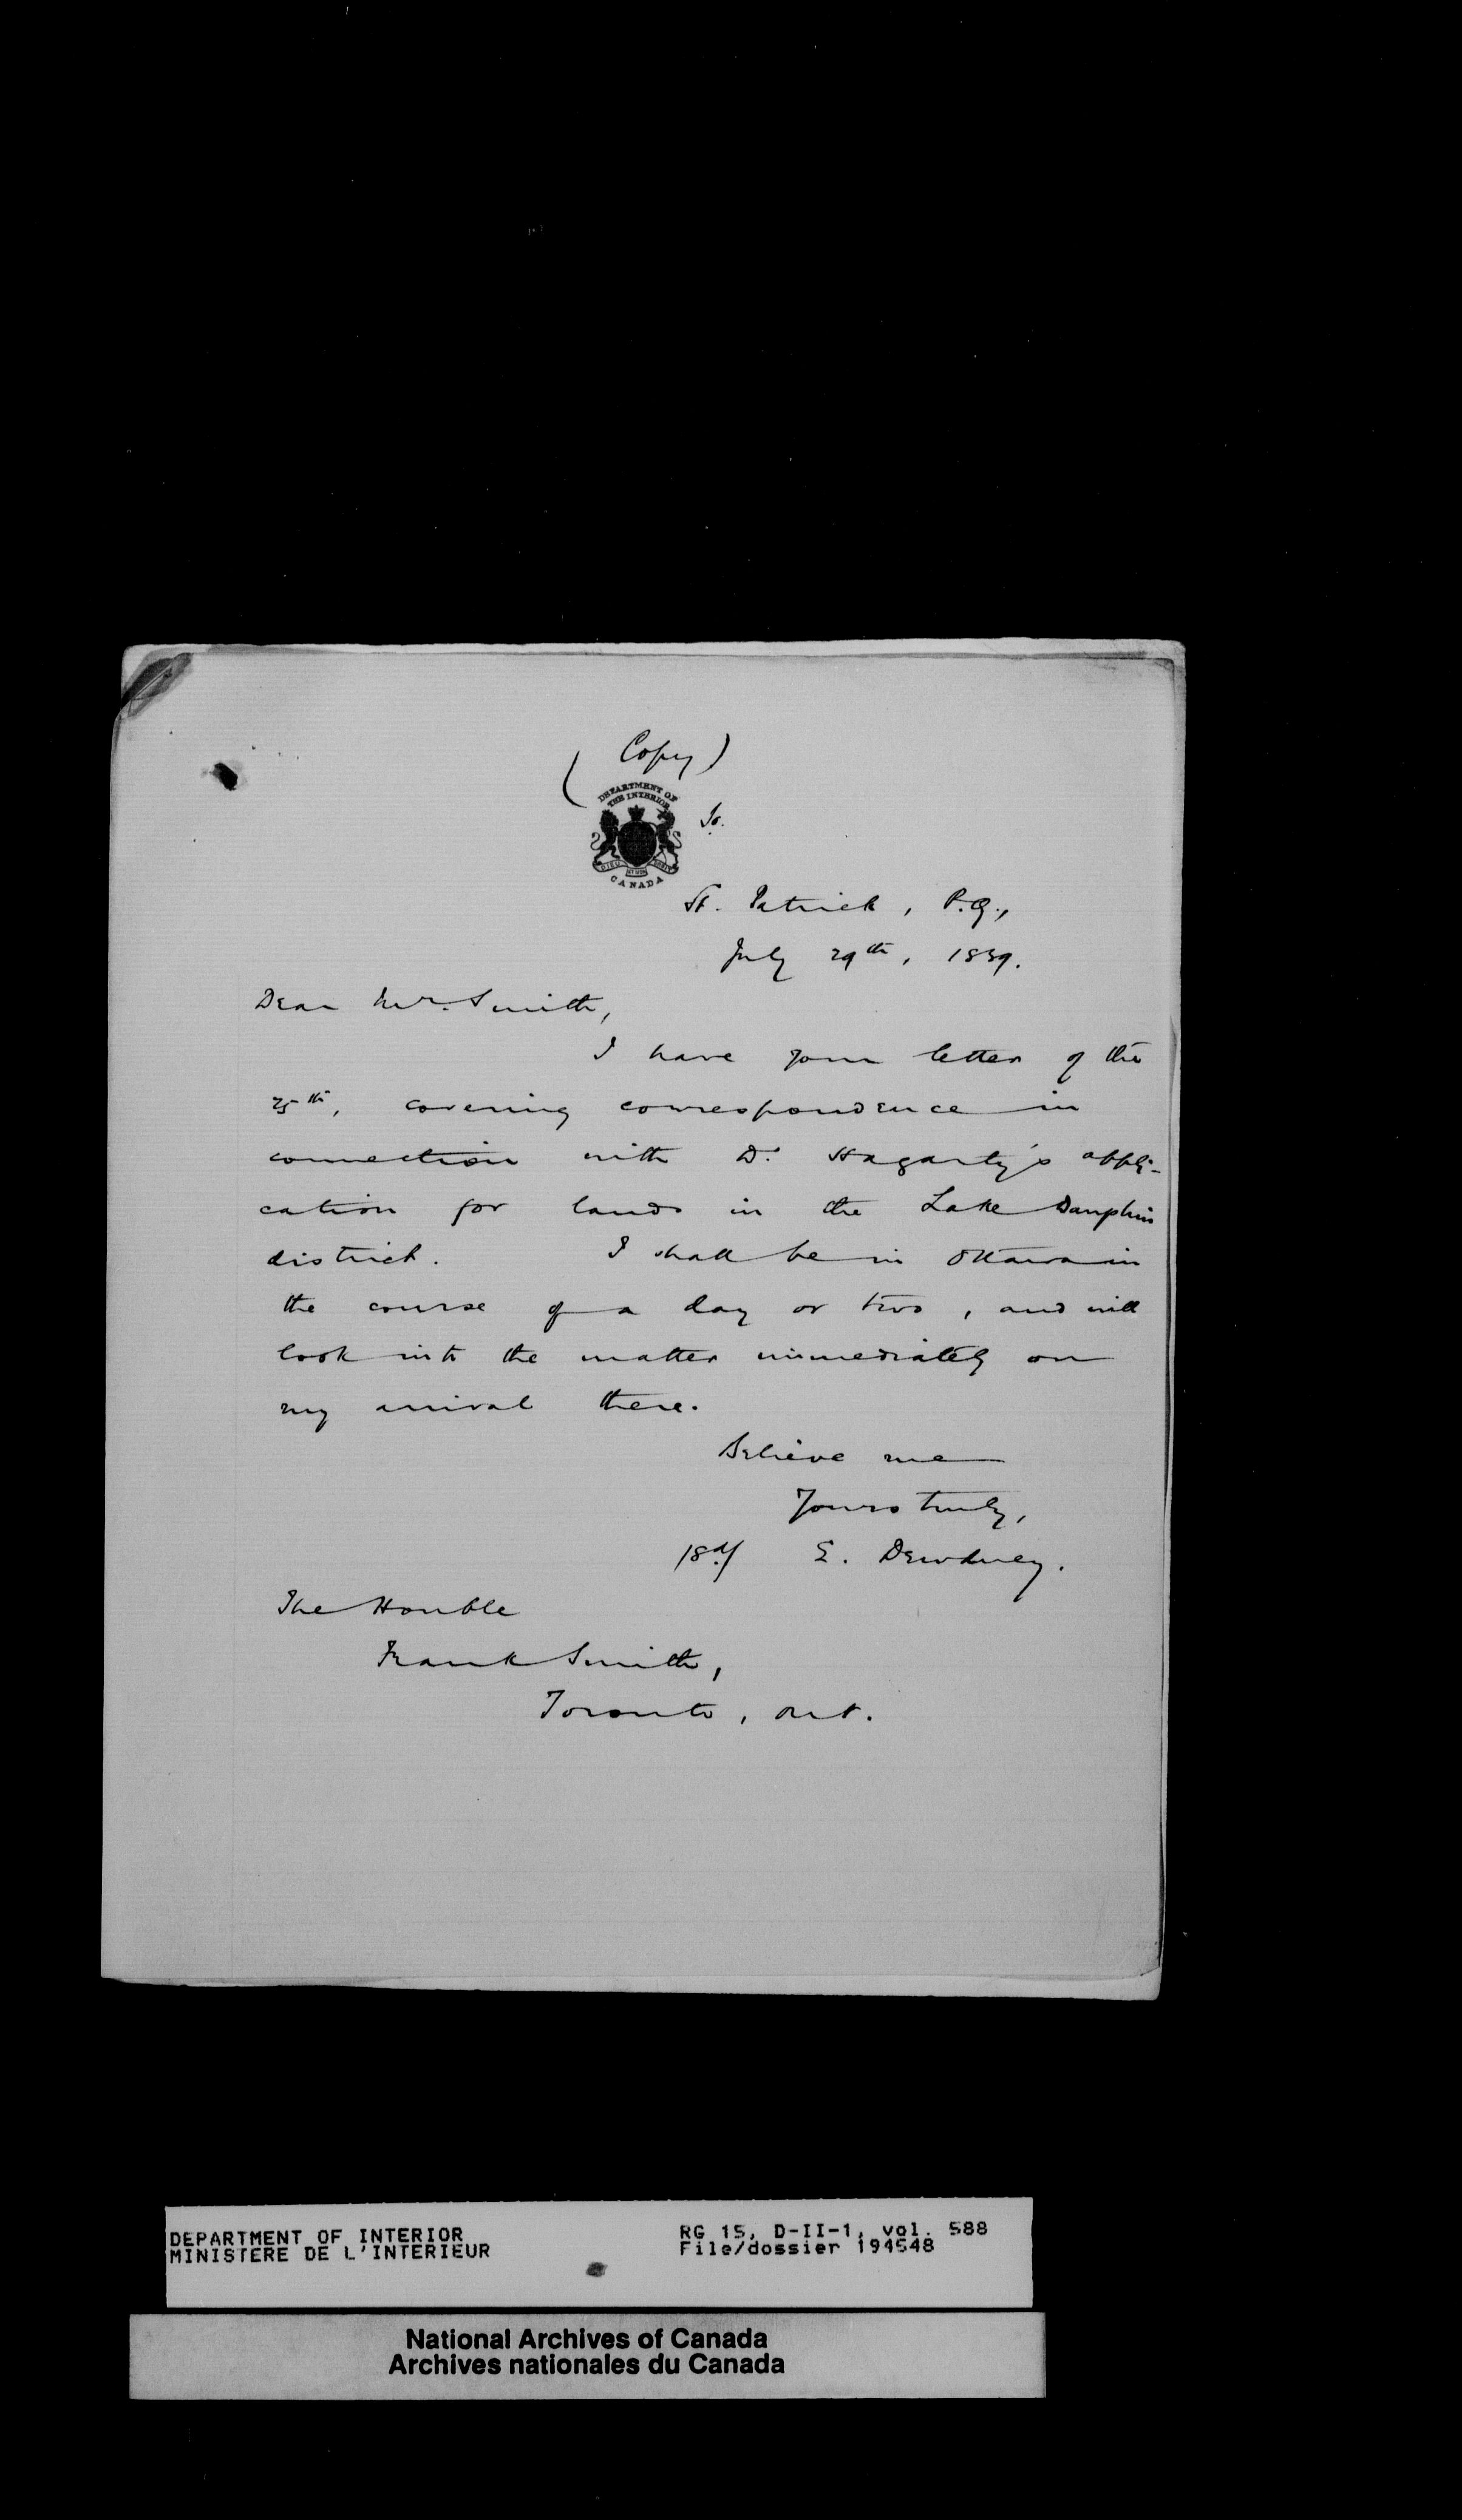 (Copy)
DEPARTMENT OF
THE INTERIOR
CANADA
St. Patrick, P.Q.,
July 29th, 1889.
Dear Mr. Smith,
I have your letter of the
25th, covering correspondence in
connection with D. Hagarty's appli-
cation for lands in the Lake Dauphin
district. I shall be in Ottawa in
the course of a day or two, and will
look into the matter immediately on
my arrival there.
Believe me
Yours truly,
E. Dewdney.
The Honble
Frank Smith,
Toronto, Ont.
DEPARTMENT OF INTERIOR
MINISTERE DE L'INTERIEUR
RG 15, D-II-1, vol. 588
File/dossier 194548
National Archives of Canada
Archives nationales du Canada